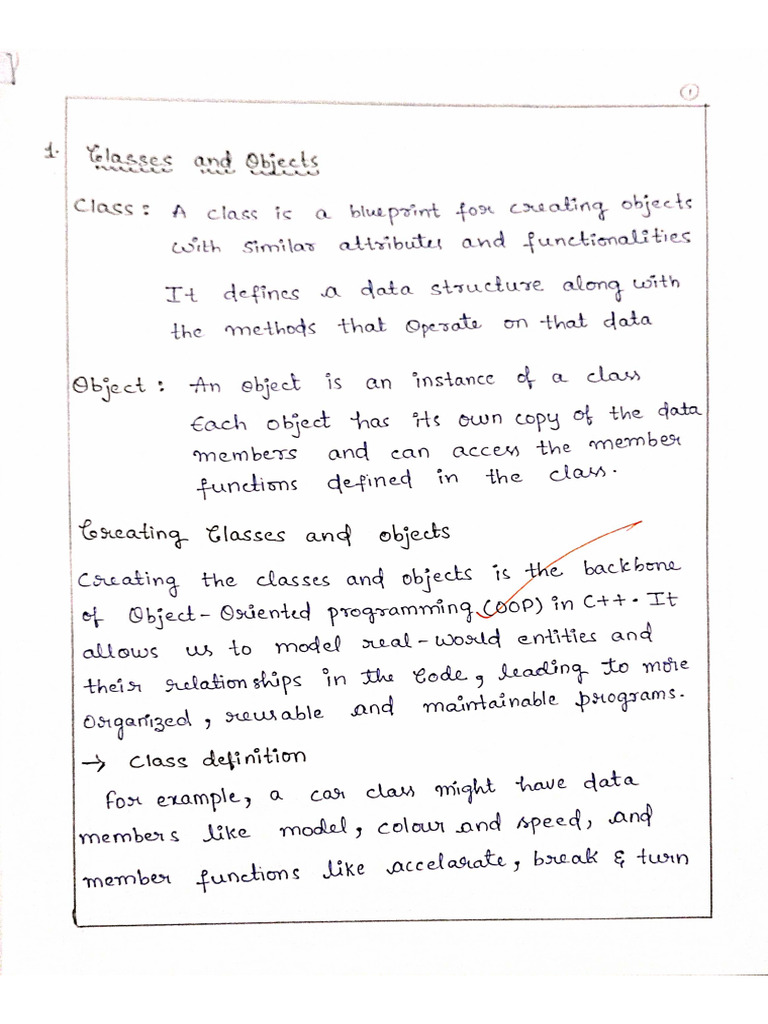 1
1. Classes and Objects
Class: A class is a blueprint for creating objects
with similar attributes and functionalities
It defines a data structure along with
the methods that operate on that data
Object: An object is an instance of a class
Each object has its own copy of the data
members and can access the member
functions defined in the class.
Creating Classes and objects
Creating the classes and objects is the backbone
of Object-Oriented programming (OOP) in C++. It
allows us to model real-world entities and
their relationships in the Code, leading to more
organized, reusable and maintainable programs.
→ Class definition
for example, a car class might have data
members like model, colour and speed, and
member functions like accelarate, break & turn